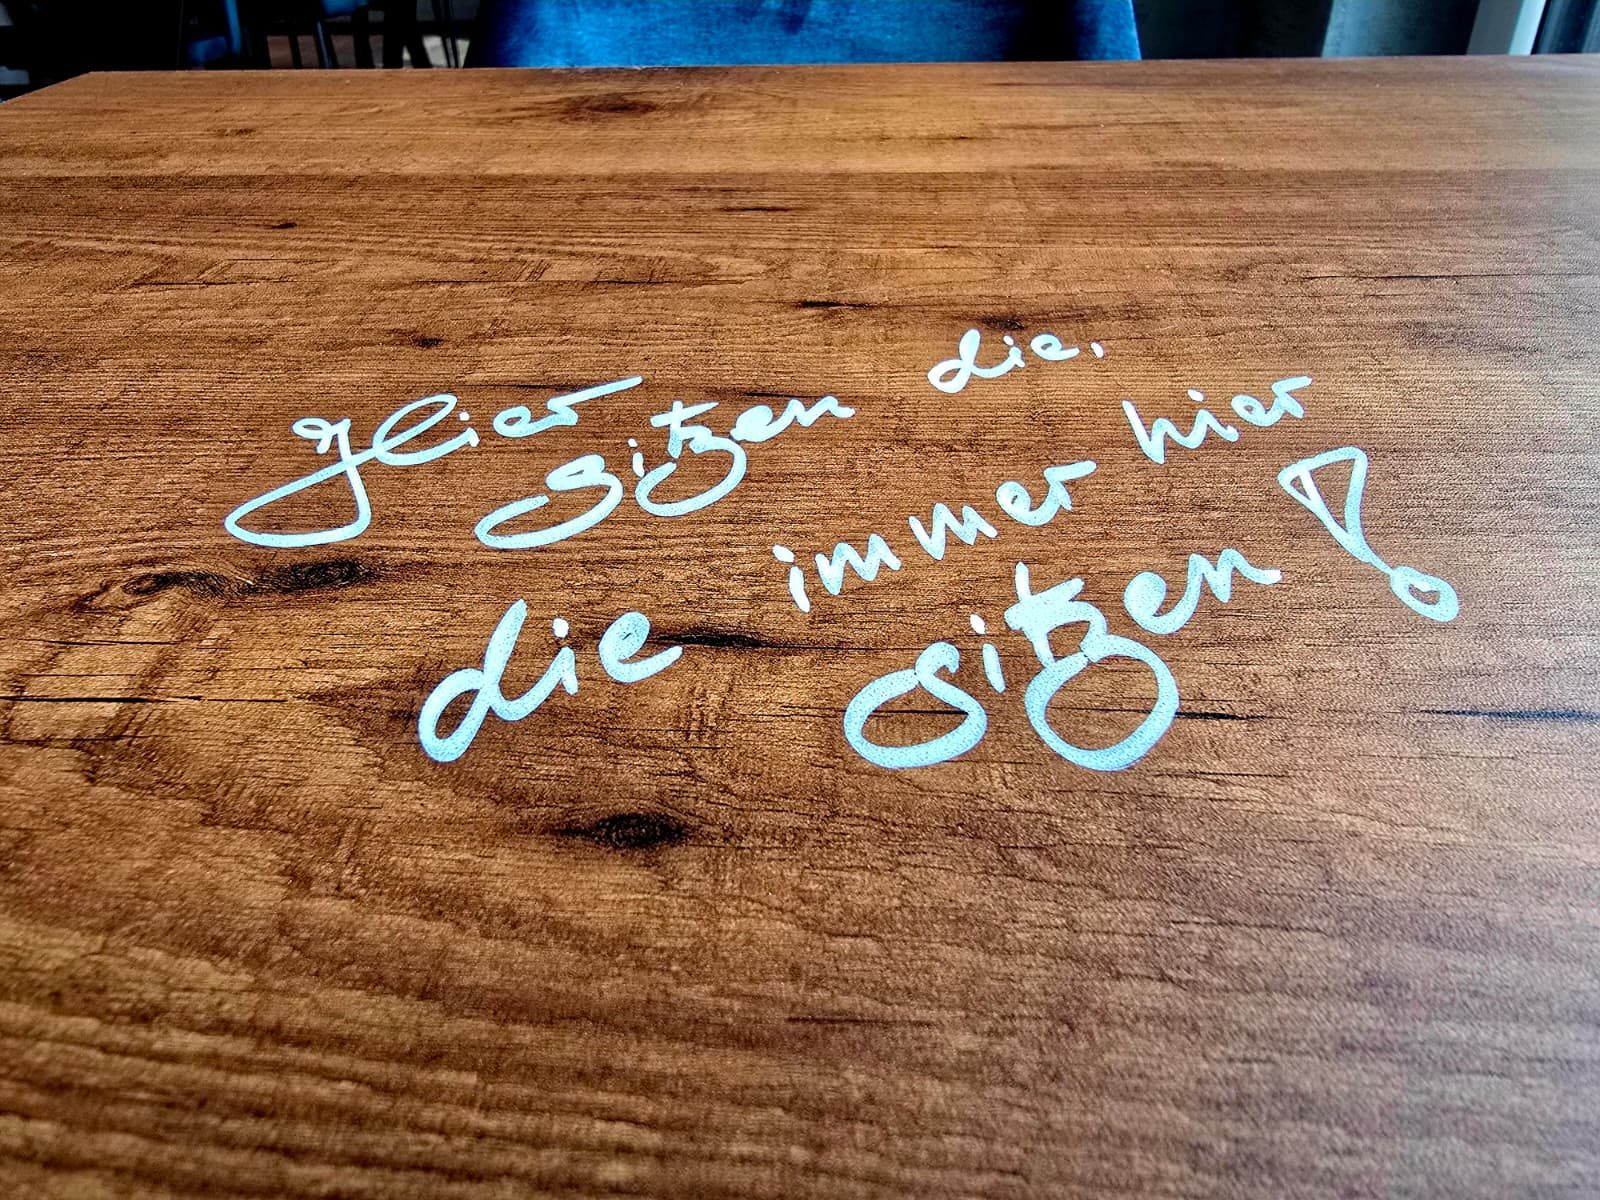 Hier sitzen die,
die immer hier
sitzen!